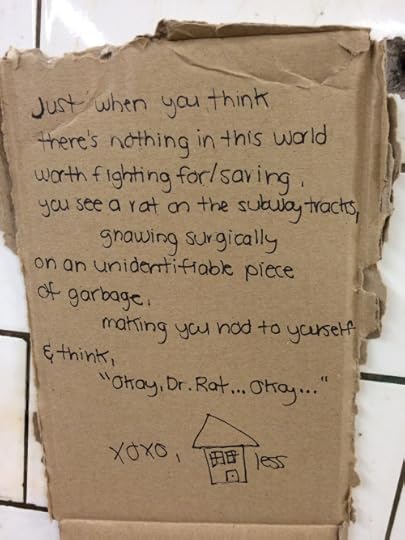 Just when you think
there's nothing in this world
worth fighting for/saving,
you see a rat on the subway tracks,
gnawing surgically
on an unidentifiable piece
of garbage,
making you nod to yourself
& think,
"Okay, Dr. Rat... Okay..."
xoxo, less